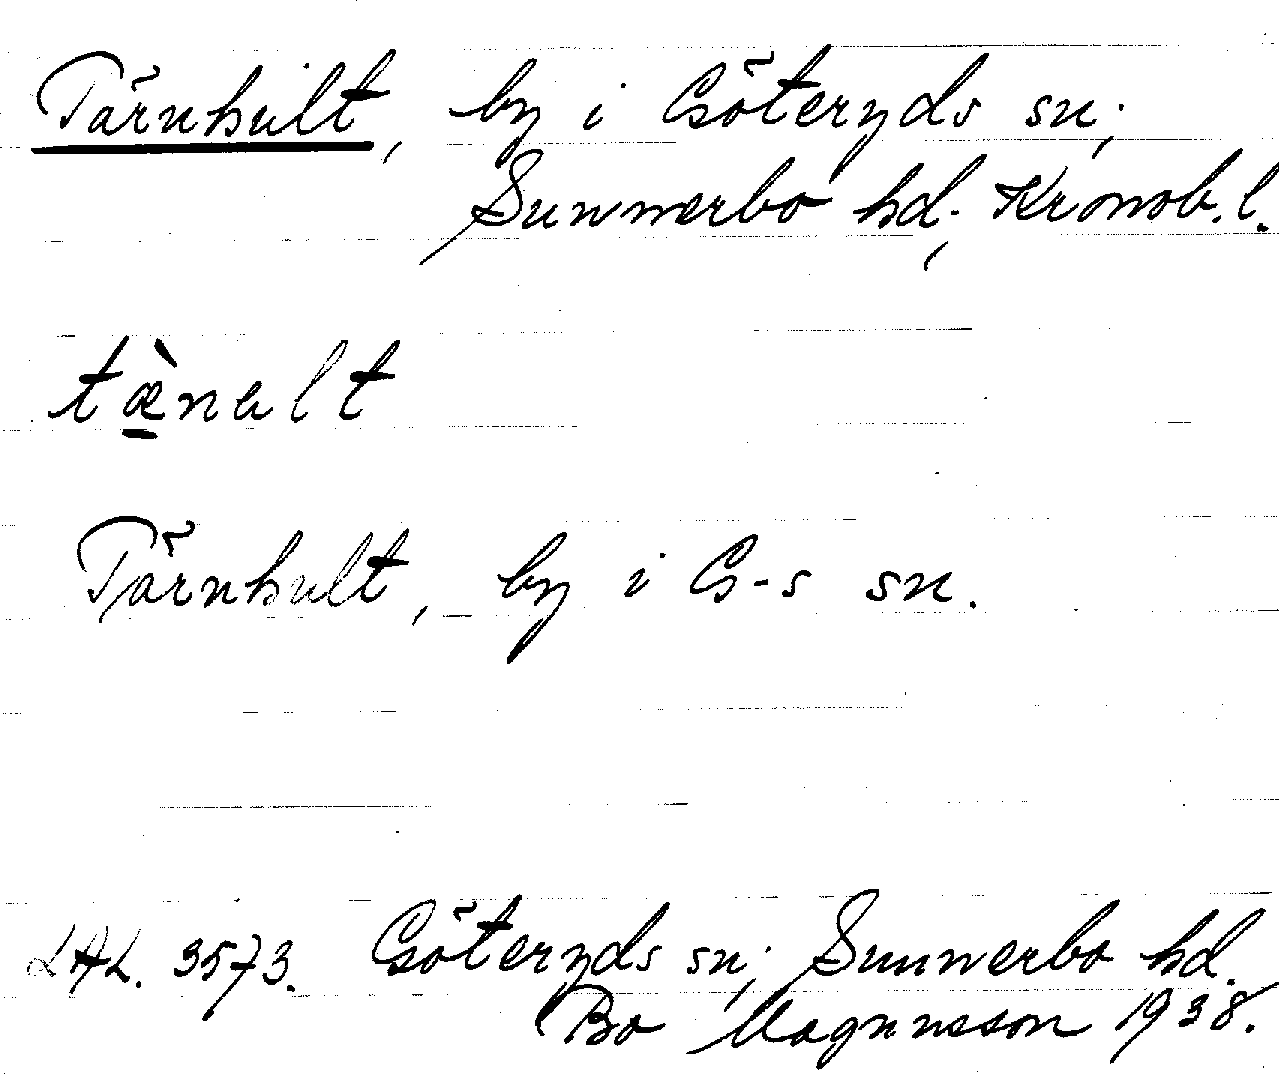 Tärnhult, by i Göteryds sn;
Sunnerbo hd; Kronob. l.
tæ̀nalt
Tärnhult, by i G-s sn.
LAL. 3573. Göteryds sn; Sunnerbo hd.
Bo Magnusson 1938.